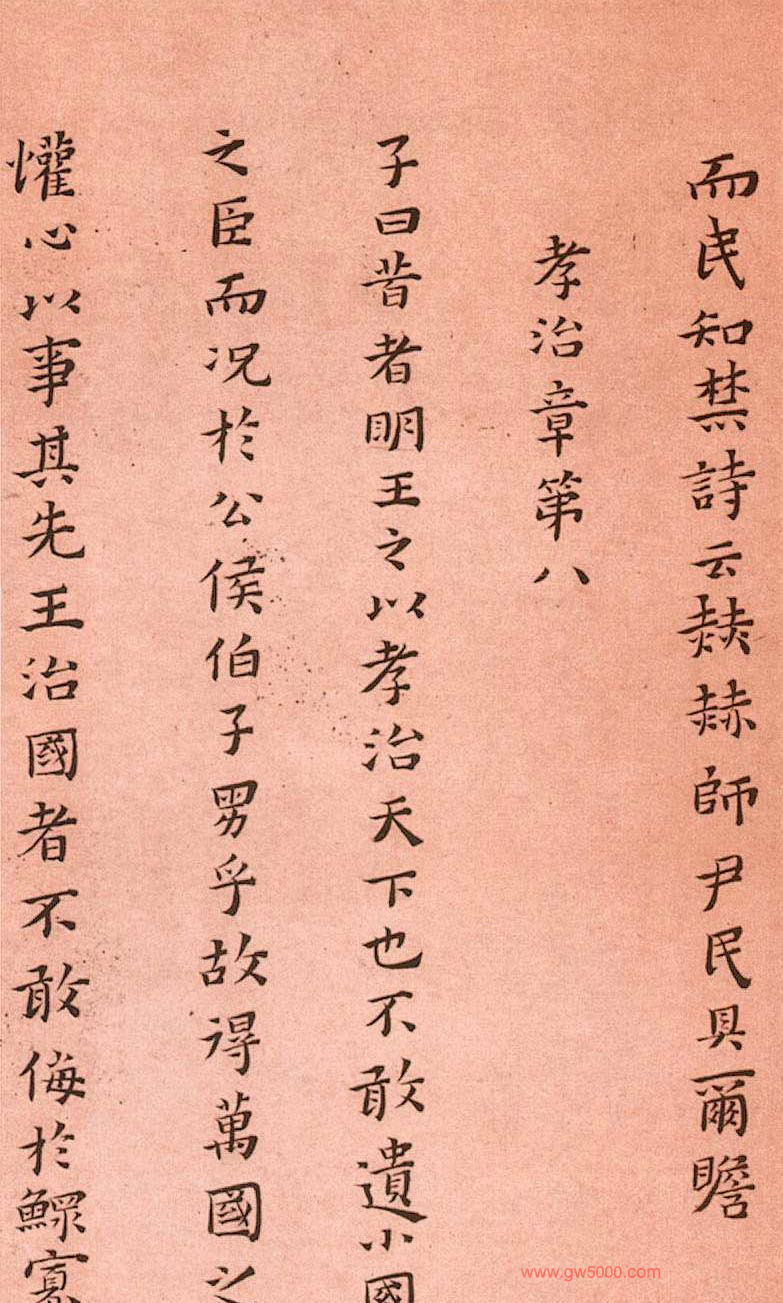 而民知禁詩云赫赫師尹民具爾瞻
孝治章第八
子曰昔者明王之以孝治天下也不敢遺小國
之臣而况於公侯伯子男乎故得萬國之
懽心以事其先王治國者不敢侮於鰥寡
www.gw5000.com